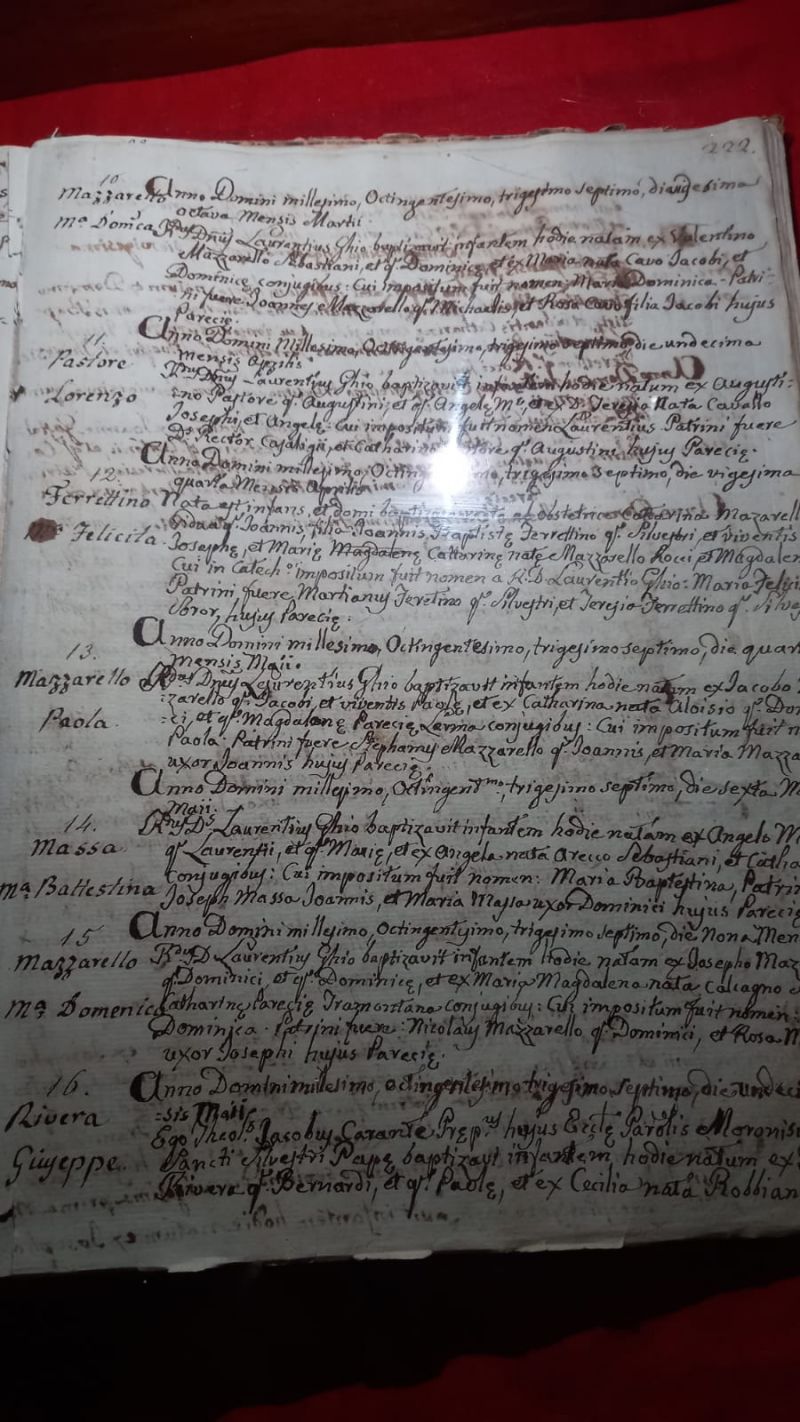 222.
10
Mazzarello Anno Domini millesimo, Octingentesimo, trigesimo septimo, die vigesima
octava Mensis Martii
Mª Dom.ca R.dus Dnus Laurentius Ghio baptizavit infantem hodie natam ex Valentino
Mazzarello Sebastiani, et q. Dominicę et ex Maria nata Cavo Jacobi, et
Dominicę conjugibus: Cui impositum fuit nomen Maria Dominica. Patri-
ni fuere Joannes Mazzarello q. Michaelis, et Rosa Cavo filia Jacobi hujus
Parecię
11. Anno Domini Millesimo, Octingentesimo, trigesimo septimo die undecima
Mensis Aprilis
Pastore R.dus Dnus Laurentius Ghio baptizavit infantem hodie natum ex Augusti:
Lorenzo ino Pastore q. Augustini, et q. Angelę Mę, et ex Dª Teresia Nata Cavallo
Josephi, et Angelę: Cui impositum fuit nomen Laurentius Patrini fuere
Ds Rector Casaligii, et Catharina q. Augustini hujus Parecię.
12. Anno Domini millesimo, trigesimo septimo, die vigesima
quarta Mensis Aprilis
Ferrettino Nata est infans, et domi ab obstetrice Mazarell
Mª Felicita q. Joannis, filia Joannis Baptistę Ferrettino q. Silvestri, et viventis
Josephę, et Marię Magdalenę Cattarinę natę Mazzarello Rocci et Magdalen
Cui in Catech.º impositum fuit nomen a R.D. Laurentio Ghio: Maria Felici
Patrini fuere Martianus Feretino q. Silvestri, et Teresia Ferrettino q. Silves
Uxor, hujus Parecię:
13. Anno Domini millesimo, Octingentesimo, trigesimo septimo, die quar
Mensis Maii.
Mazzarello R.dus Dnus Laurentius Ghio baptizavit infantem hodie natam ex Jacobo
:zarello q. Jacobi, et viventis Paolę, et ex Catharina nata Aloisio q. Dom
Paola. :ci, et q. Magdalenę Parecię Lerma conjugibus: Cui impositum fuit n
Paola. Patrini fuere Stephanus Mazzarello q. Joannis, et Maria Mazza
uxor Joannis hujus Parecię.
Anno Domini millesimo, Octingent.mo, trigesimo septimo, die sexta M
Maii.
14. R.dus Ds Laurentius Ghio baptizavit infantem hodie natam ex Angelo M
Massa q. Laurentii, et q. Marię, et ex Angela nata Arecco Sebastiani, et Catha
Mª Battestina Conjugibus: Cui impositum fuit nomen: Maria Baptestina, Patrin
Joseph Massa Joannis, et Maria Massa uxor Dominici hujus Parecię
15 Anno Domini millesimo, Octingentesimo, trigesimo septimo, die Nona Men
Mazzarello R.dus D. Laurentius Ghio baptizavit infantem hodie natam ex Josepho Maz
q. Dominici, et q. Dominicę, et ex Maria Magdalena nata Calcagno e
Mª Domenica Catharinę Parecię conjugibus: Cui impositum fuit nomen:
Dominica. Patrini fuere: Nicolaus Mazzarello q. Dominici, et Rosa M
uxor Josephi hujus Parecię.
16. Anno Domini millesimo, octingentesimo trigesimo septimo, die undeci
:sis Maii
Rivera Ego Theol.s Jacobus Carante Pręp.us hujus Eccl.ę Parolis Moronisi
Giuseppe Sancti Silvestri Papę baptizavi infantem hodie natum ex
Rivera q. Bernardi, et q. Paolę, et ex Cecilia nata Robbian